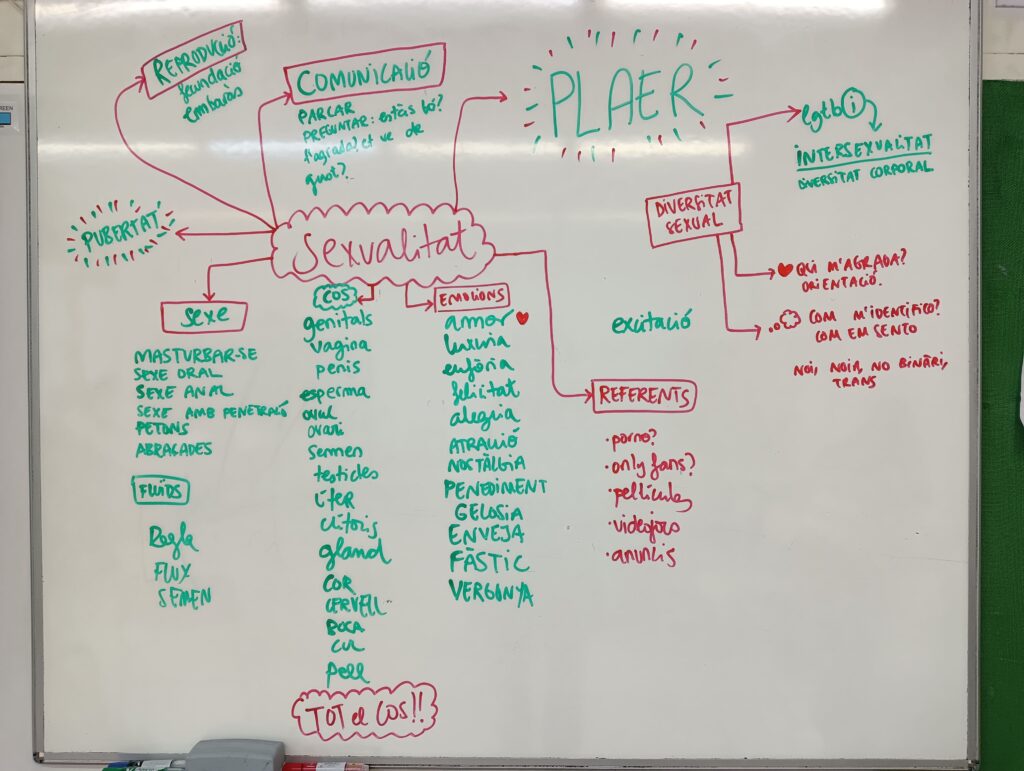 REPRODUCCIÓ:
fecundació
embaràs
COMUNICACIÓ
PARLAR
PREGUNTAR: estàs bó?
t'agrada? et ve de
gust?
PLAER
lgtb i
INTERSEXUALITAT
DIVERSITAT CORPORAL
DIVERSITAT
SEXUAL
QUI M'AGRADA?
ORIENTACIÓ.
COM M'IDENTIFICO?
COM EM SENTO
NOI, NOIA, NO BINÀRI,
TRANS
PUBERTAT
Sexualitat
SEXE
MASTURBAR-SE
SEXE ORAL
SEXE ANAL
SEXE AMB PENETRACIÓ
PETONS
ABRAÇADES
FLUÏDS
Regla
FLUX
SEMEN
COS
genitals
vagina
penis
esperma
òvul
ovari
Semen
testicles
úter
clítoris
gland
COR
CERVELL
BOCA
CUL
Pell
TOT el COS!!
EMOCIONS
amor
luxuria
eufòria
felicitat
alegria
ATRACCIÓ
NOSTÀLGIA
PENEDIMENT
GELOSIA
ENVEJA
FÀSTIC
VERGONYA
excitació
REFERENTS
· porno?
· only fans?
· pel·lícules
· videojocs
· anuncis